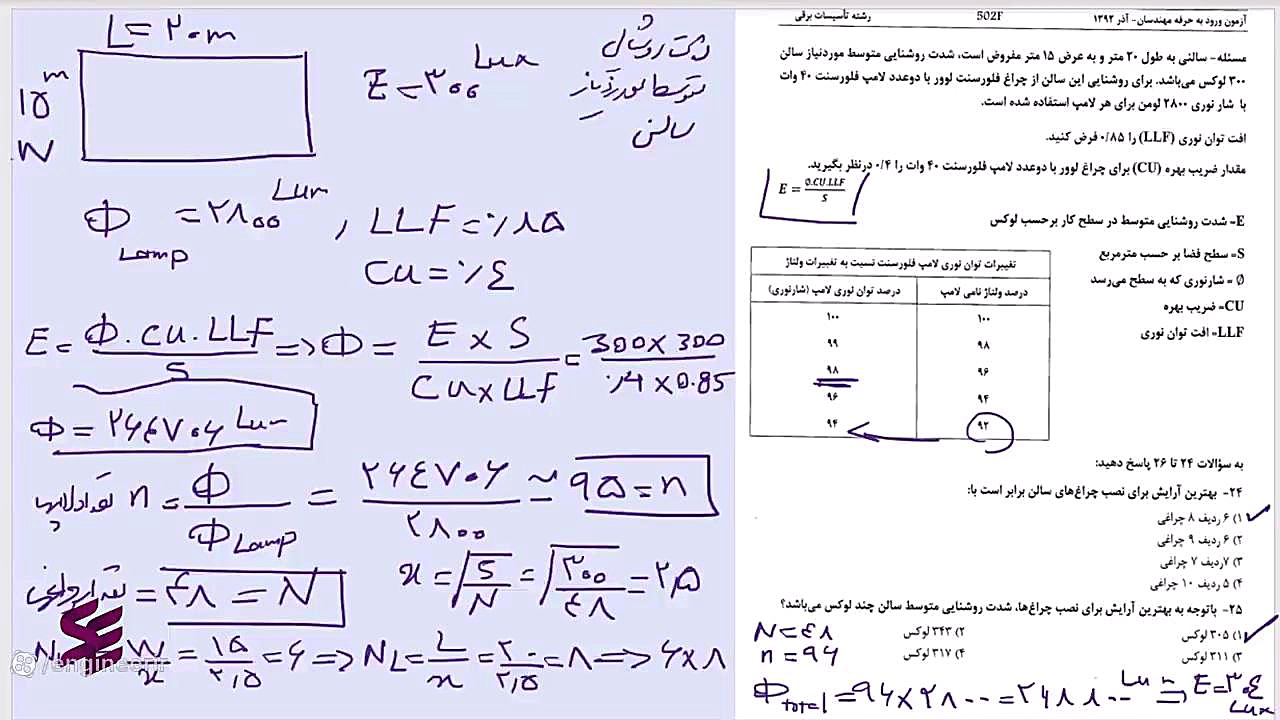 L = ۲۰m
۱۵ m
W
E = ۳۰۰ Lux
شدت روشنایی
متوسط مورد نیاز
سالن
Φ Lamp = ۲۸۰۰ Lum , LLF = ٪۸۵
CU = ٪۴
E = Φ.CU.LLF / S => Φ = E x S / CU x LLF = 300 x 300 / ٠.4 x 0.85
Φ = ۲۶۴۷۰۶ Lum
تعداد لامپها n = Φ / Φ Lamp = ۲۶۴۷۰۶ / ۲۸۰۰ ≃ ۹۵ = n
تعداد چراغ = ۴۸ = N
x = √S/N = √۳۰۰/۴۸ = ۲,۵
W/x = ۱۵/۲,۵ = ۶ => NL = L/x = ۲۰/۲,۵ = ۸ => ۶ x ۸
/engineer
آزمون ورود به حرفه مهندسان- آذر ۱۳۹۲
502F
رشته تأسیسات برقی
مسئله- سالنی به طول ۲۰ متر و به عرض ۱۵ متر مفروض است، شدت روشنایی متوسط موردنیاز سالن
۳۰۰ لوکس می‌باشد. برای روشنایی این سالن از چراغ فلورسنت لوور با دوعدد لامپ فلورسنت ۴۰ وات
با شار نوری ۲۸۰۰ لومن برای هر لامپ استفاده شده است.
افت توان نوری (LLF) را ۰/۸۵ فرض کنید.
مقدار ضریب بهره (CU) برای چراغ لوور با دوعدد لامپ فلورسنت ۴۰ وات را ۰/۴ درنظر بگیرید.
E = Φ.CU.LLF / S
E= شدت روشنایی متوسط در سطح کار برحسب لوکس
S= سطح فضا بر حسب مترمربع
Φ= شارنوری که به سطح می‌رسد
CU= ضریب بهره
LLF= افت توان نوری
تغییرات توان نوری لامپ فلورسنت نسبت به تغییرات ولتاژ
درصد ولتاژ نامی لامپ
درصد توان نوری لامپ (شارنوری)
۱۰۰ ۱۰۰
۹۸ ۹۹
۹۶ ۹۸
۹۴ ۹۶
۹۲ ۹۴
به سؤالات ۲۴ تا ۲۶ پاسخ دهید:
۲۴- بهترین آرایش برای نصب چراغ‌های سالن برابر است با:
۱) ۶ ردیف ۸ چراغی
۲) ۶ ردیف ۹ چراغی
۳) ۷ردیف ۷ چراغی
۴) ۵ ردیف ۱۰ چراغی
۲۵- باتوجه به بهترین آرایش برای نصب چراغ‌ها، شدت روشنایی متوسط سالن چند لوکس می‌باشد؟
۱) ۳۰۵ لوکس
۲) ۳۴۳ لوکس
۳) ۳۱۱ لوکس
۴) ۳۱۷ لوکس
N = ۴۸
n = ۹۶
Φ total = ۹۶ x ۲۸۰۰ = ۲۶۸۸۰۰ Lum => E = ۳۰۴ Lux